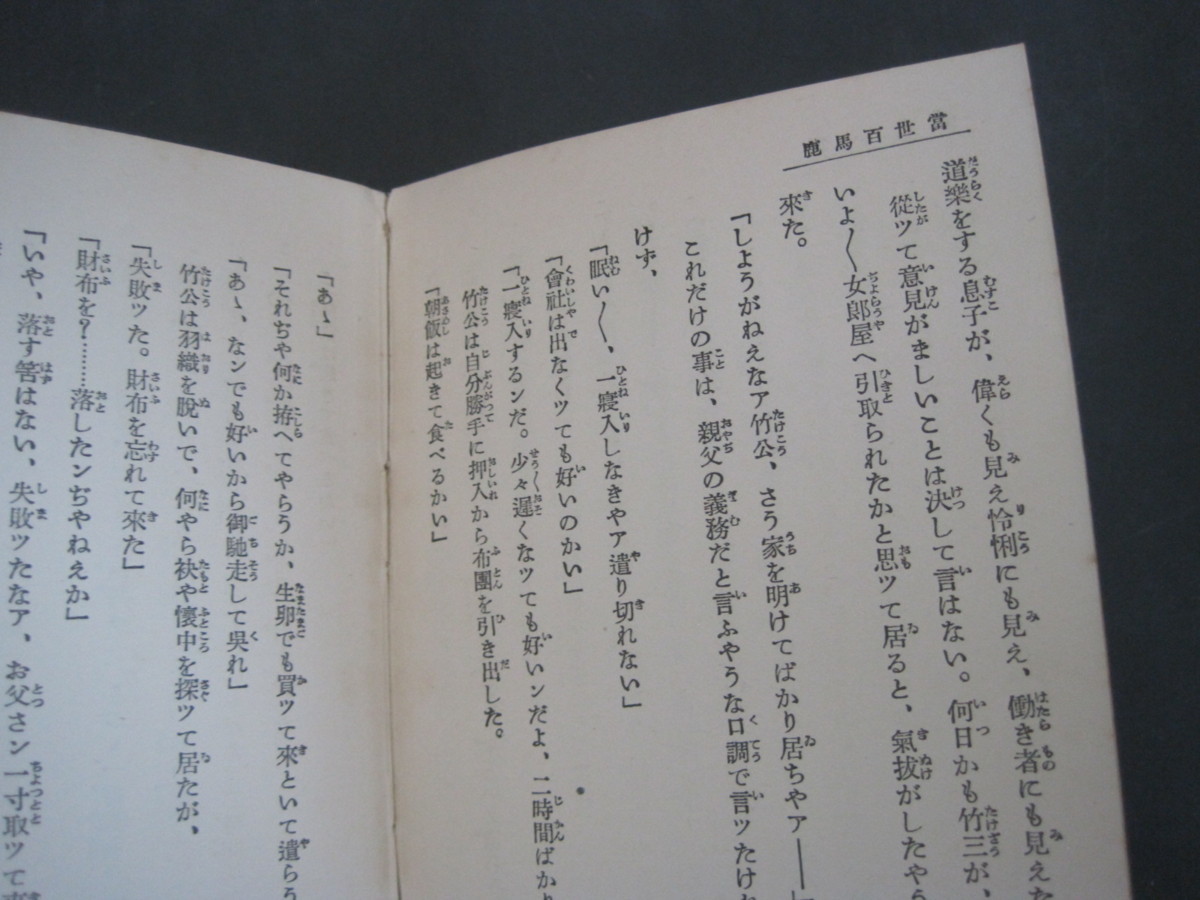 當世百馬鹿
道樂をする息子が、偉くも見え怜悧にも見え、働き者にも見えた
從ツて意見がましいことは決して言はない。何日かも竹三が、
いよ〳〵女郎屋へ引取られたかと思ツて居ると、氣拔がしたやう
來た。
「しようがねえなア竹公、さう家を明けてばかり居ちやア――」
これだけの事は、親父の義務だと言ふやうな口調で言ツたけれ
けず、
「眠い〳〵、一寢入しなきやア遣り切れない」
「會社は出なくツても好いのかい」
「一寢入するンだ。少々遲くなツても好いンだよ、二時間ばかり
竹公は自分勝手に押入から布團を引き出した。
「朝飯は起きて食べるかい」
「あゝ」
「それぢや何か拵へてやらうか、生卵でも買ツて來といて遣らう
「あゝ、なンでも好いから御馳走して吳れ」
竹公は羽織を脫いで、何やら袂や懷中を探ツて居たが、
「失敗ツた。財布を忘れて來た」
「財布を?………落したンぢやねえか」
「いや、落す筈はない、失敗ツたなア、お父さン一寸取ツて